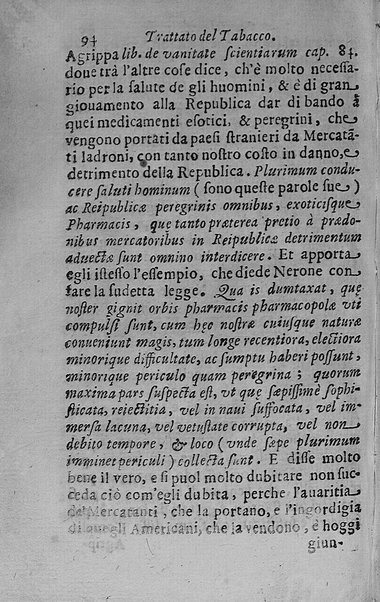 94 Trattato del Tabacco.
Agrippa lib. de vanitate scientiarum cap. 84.
doue trà l'altre cose dice, ch'è molto necessa-
rio per la salute de gli huomini, & è di gran
giouamento alla Republica dar di bando à
quei medicamenti esotici, & peregrini, che
vengono portati da paesi stranieri da Mercatā-
ti ladroni, con tanto nostro costo in danno, e
detrimento della Republica. Plurimum condu-
cere saluti hominum ( sono queste parole sue )
ac Reipublicæ peregrinis omnibus, exoticisque
Pharmacis, que tanto præterea pretio à prædo-
nibus mercatoribus in Reipublicæ detrimentum
aduectæ sunt omnino interdicere. Et apporta
egli istesso l'essempio, che diede Nerone con
fare la sudetta legge. Qua is dumtaxat, quę
noster gignit orbis pharmacis pharmacopolæ vti
compulsi sunt, cum hęc nostræ cuiusque naturæ
conueniunt magis, tum longe recentiora, electiora
minorique difficultate, ac sumptu haberi possunt,
minorique periculo quam peregrina ; quorum
maxima pars suspecta est, vt quę sæpissimè sophi-
sticata, reiectitia, vel in naui suffocata, vel im-
mersa lacuna, vel vetustate corrupta, vel non
debito tempore, & loco ( vnde sæpe plurimum
imminet periculi ) collecta sunt. E disse molto
bene il vero, e si puol molto dubitare non suc-
ceda ciò com'egli dubita, perche l'auaritia
de' Mercatanti, che la portano, e l'ingordigia
di quegli Americani, che la vendono, è hoggi
giun-